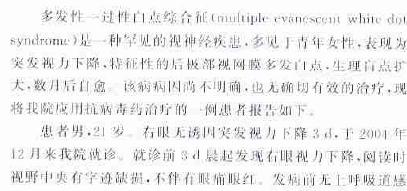 多发性一过性白点综合征(multiple evanescent white dot
syndrome)是一种罕见的视神经疾患,多见于青年女性,表现为
突发视力下降,特征性的后极部视网膜多发白点,生理盲点扩
大,数月后自愈。该病病因尚不明确,也无确切有效的治疗,现
将我院应用抗病毒药治疗的一例患者报告如下。
患者男,21岁。右眼无诱因突发视力下降3 d,于2004年
12月来我院就诊。就诊前3 d晨起发现右眼视力下降,阅读时
视野中央有字迹缺损,不伴有眼痛眼红。发病前无上呼吸道感